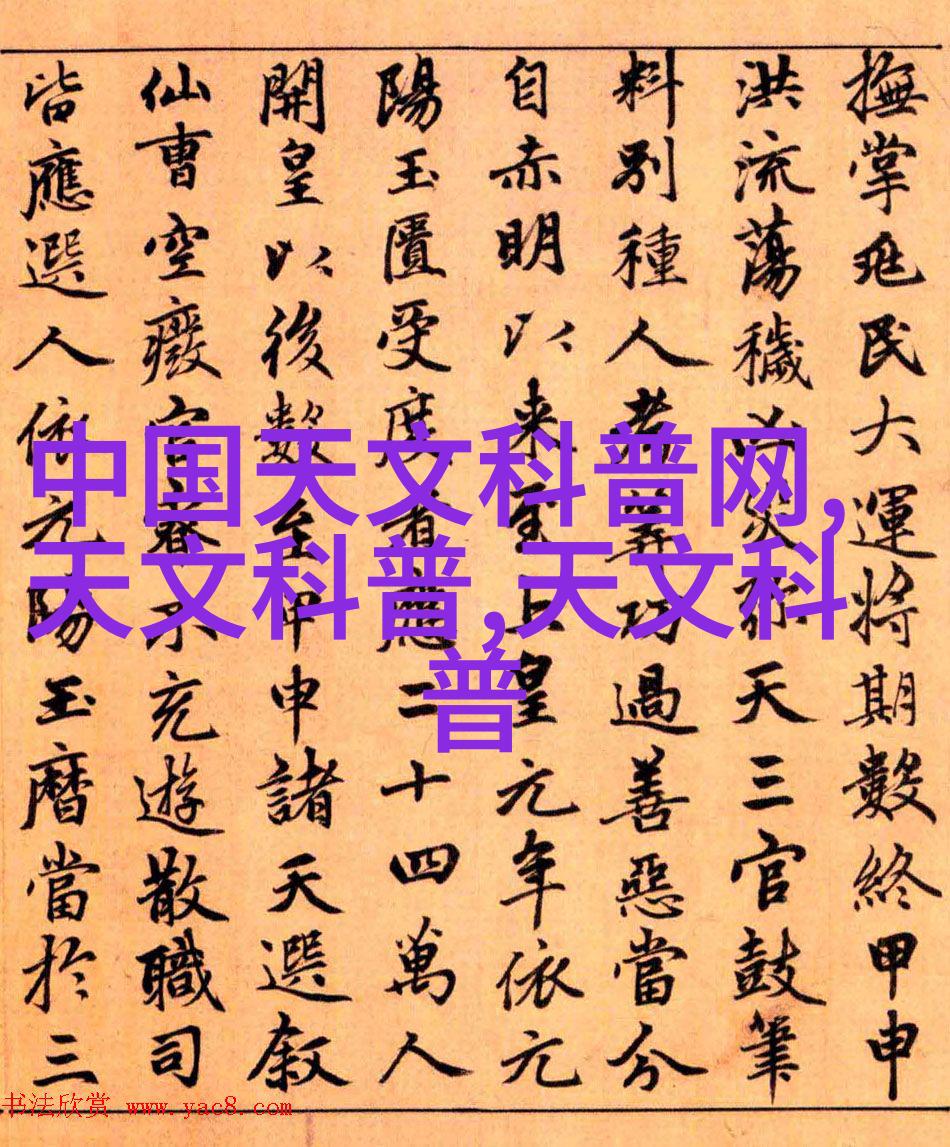 撫掌兆民大運將期數終甲申
洪流蕩穢凶災弥天三官鼓筆
料別種人考筭功過善惡當分
自赤明以来至上皇元年依元
陽玉匱受度者應二十四萬人
開皇以後數至甲申諸天選敘
仙曹空癈官寮不充遊散職司
皆應選人依元陽玉曆當於三
中国天文科普网,
天文科普,天文科
普
书法欣赏 www.yac8.com